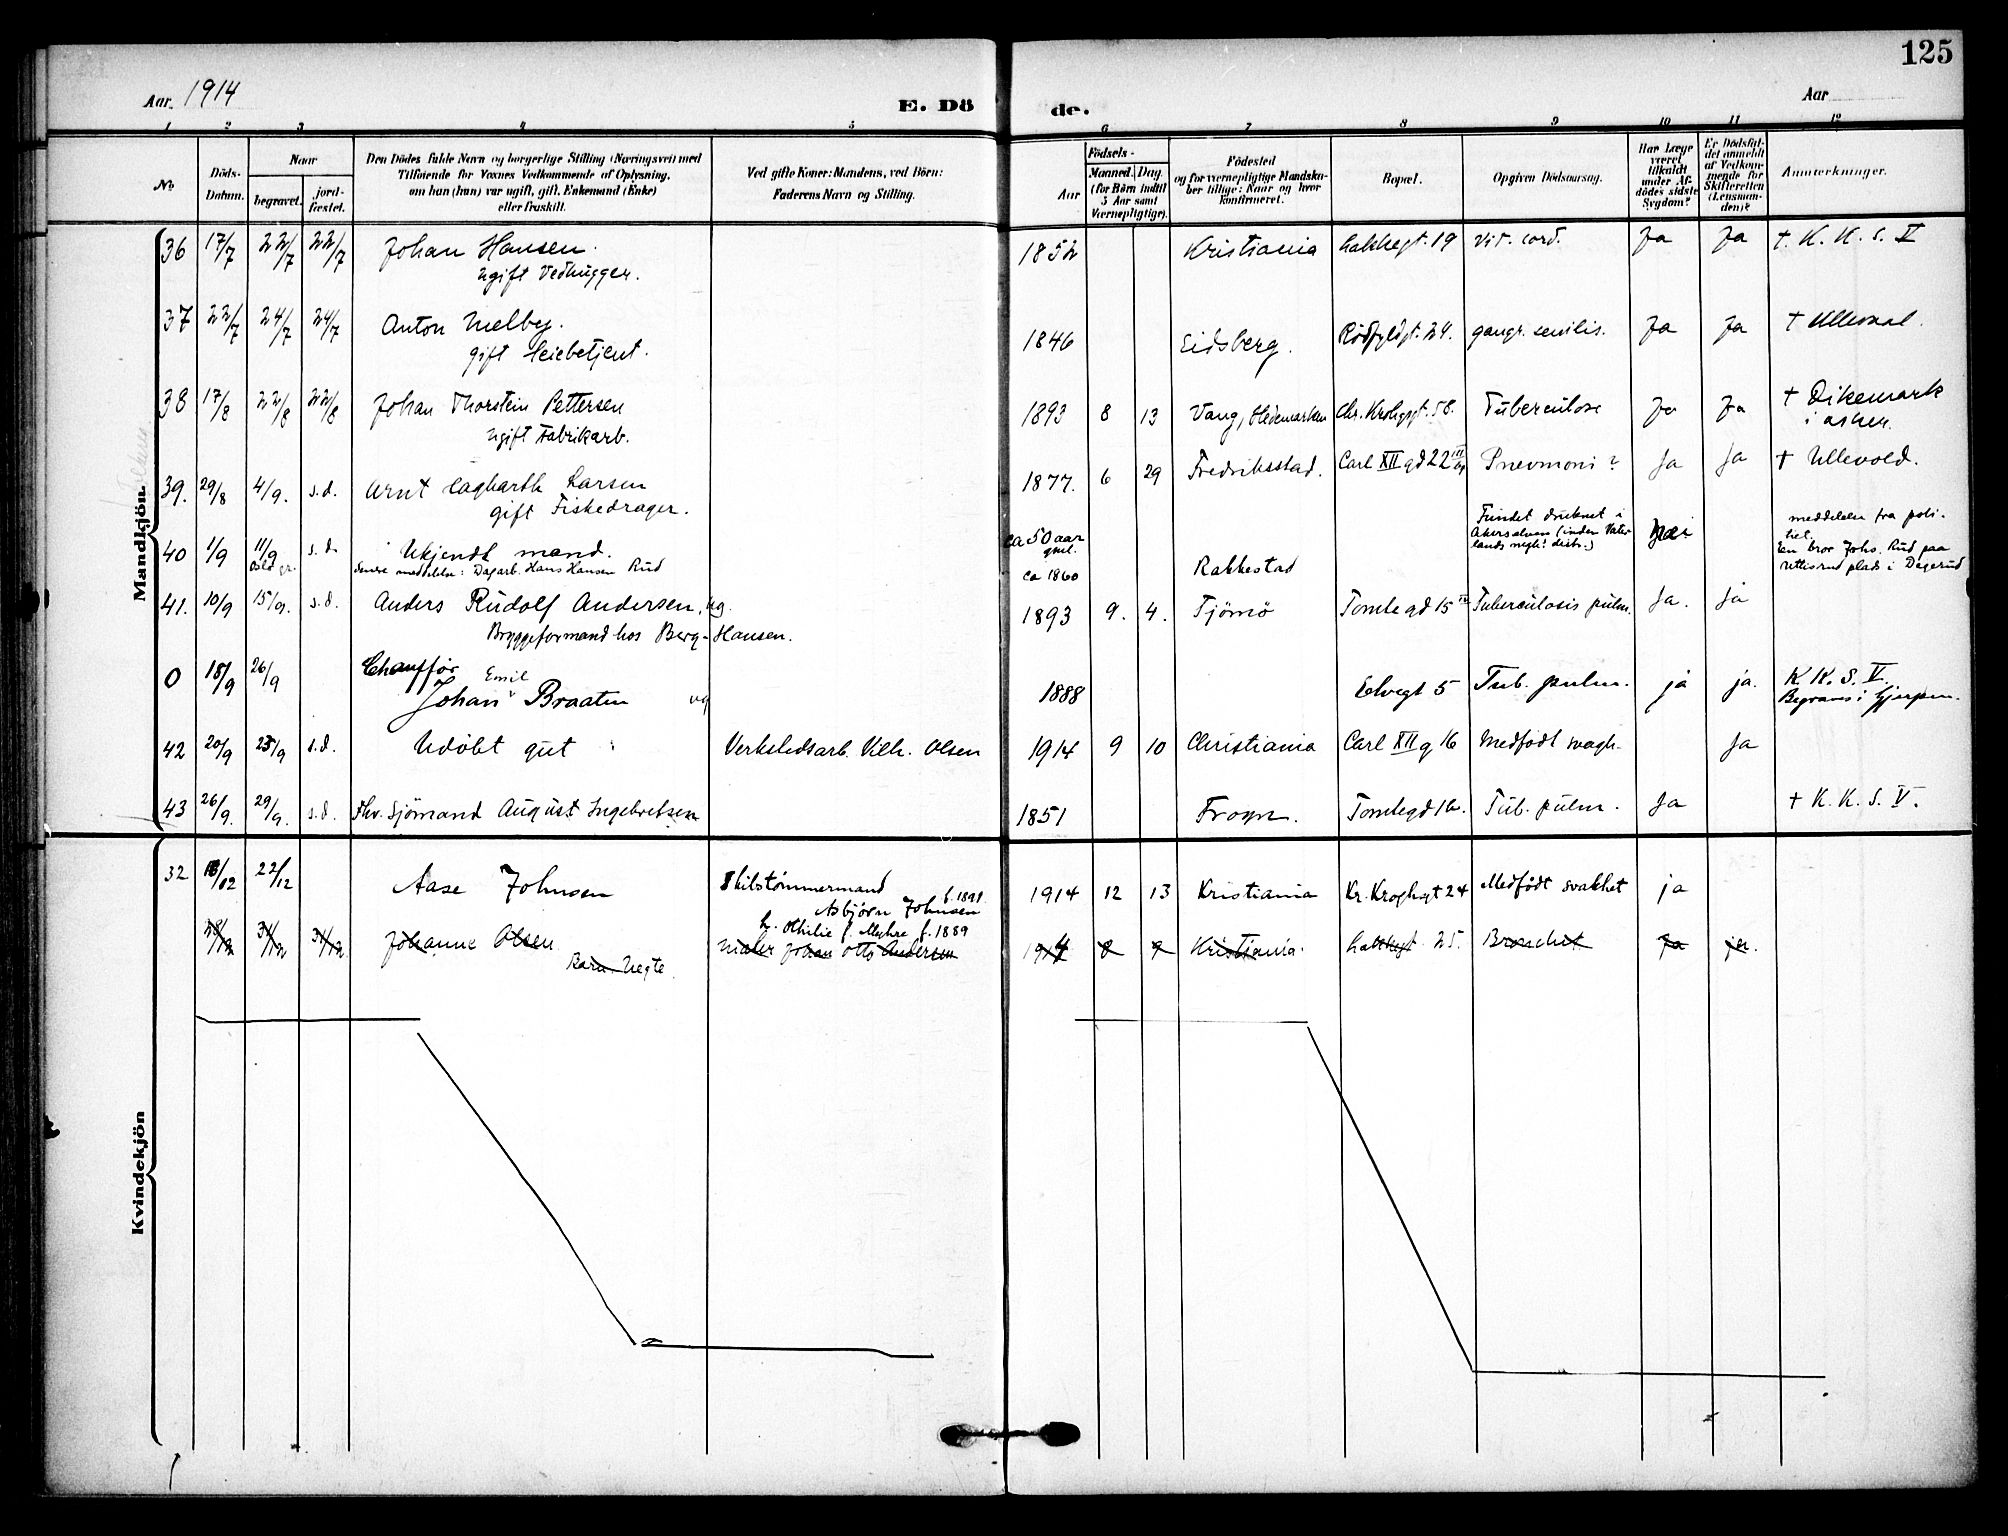 125
Aar 1914
E. Dö
de.
Aar
1 2 3 4 5 6 7 8 9 10 11 12
No
Döds-Datum.
Naar
begravet.
jord-fæstet.
Den Dödes fulde Navn og borgerlige Stilling (Næringsvei) med
Tilföiende for Voxnes Vedkommende af Oplysning,
om han (hun) var ugift, gift, Enkemand (Enke)
eller fraskilt.
Ved gifte Koner: Mandens, ved Börn:
Faderens Navn og Stilling.
Födsels-
Aar
Maaned. Dag
(for Börn indtil
5 Aar samt
Værnepligtige).
Födested
og for værnepligtige Mandska-
ber tillige: Naar og hvor
konfirmeret.
Bopæl.
Opgiven Dödsaarsag.
Har Læge
været
tilkaldt
under Af-
dödes sidste
Sygdom?
Er Dödsfal-
det anmeldt
af Vedkom-
mende for
Skifteretten
(Lensman-
den)?
Anmerkninger.
Mandkjön.
36 17/7 22/7 22/7 Johan Hansen. 1852 Kristiania Lakkegt. 19 Vit. cord. Ja Ja †. K. K. S. V
ugift Vedhugger.
37 22/7 24/7 24/7 Anton Melby. 1846 Eidsberg. Rödfyldgt. 24. gangr. senilis. Ja Ja † Ullevaal.
gift Leiebetjent.
38 17/8 22/8 22/8 Johan Thorstein Pettersen 1893 8 13 Vang, Hedemarken Chr. Krohgsgt. 58. Tuberculose Ja Ja † Dikemark
ugift Fabrikarb. i Asker.
39. 29/8 4/9. s.d. Arnt Lagharth Larsen 1877. 6 29 Fredriksstad. Carl XII gd 22 III Pnevmoni? Ja Ja † Ullevold.
gift Fiskedrager.
40 1/9 11/9 s.d. Ukjendt mand. ca 50 aar gml. Fundet druknet i Akerselven (inden Vaterlands megh. distr.) nei meddelelse fra politiet.
senere meddelelse: Dagarb. Hans Hansen Rud ca 1860 Rakkestad En bror Johs. Rud paa
rettisrud plads i Degerud
41. 10/9 15/9. s.d. Anders Rudolf Andersen, ug. 1893 9. 4. Tjömö Tomtegd 15 IV Tuberculosis pulm. Ja. Ja
Bryggeformand hos Berg-Hansen.
0 18/9 26/9 Chauffør Emil
Johan Braaten ug 1888 Eelvegt 5 Tub. pulm. ja ja. K. K. S. V.
Begraves i Gjerpen.
42 20/9 25/9 s.d. Udöbt gut Verkstedsarb. Vilh. Olsen 1914 9 10 Christiania Carl XII g 16 Medfödt svagh. Ja
43 26/9. 29/9. s.d. Fhv. Sjömand August Ingebretsen 1851 Frogn. Tomtegd 16. Tub. pulm. Ja † K. K. S. V.
Kvindekjön
32 18/12 22/12 Aase Johnsen Skibstömmermand 1914 12 13 Kristiania Kr. Kroghsgt 24 Medfödt svakhet ja
Asbjörn Johnsen f. 1891
h. Othilie f. Myhre f. 1889
28/12 31/12 31/12 Johanne Olsen Maler Johan Otto Andersen 1914 9 9 Kristiania. Lakkegt 25. Bronchit Ja ja.
Barn Uegte.